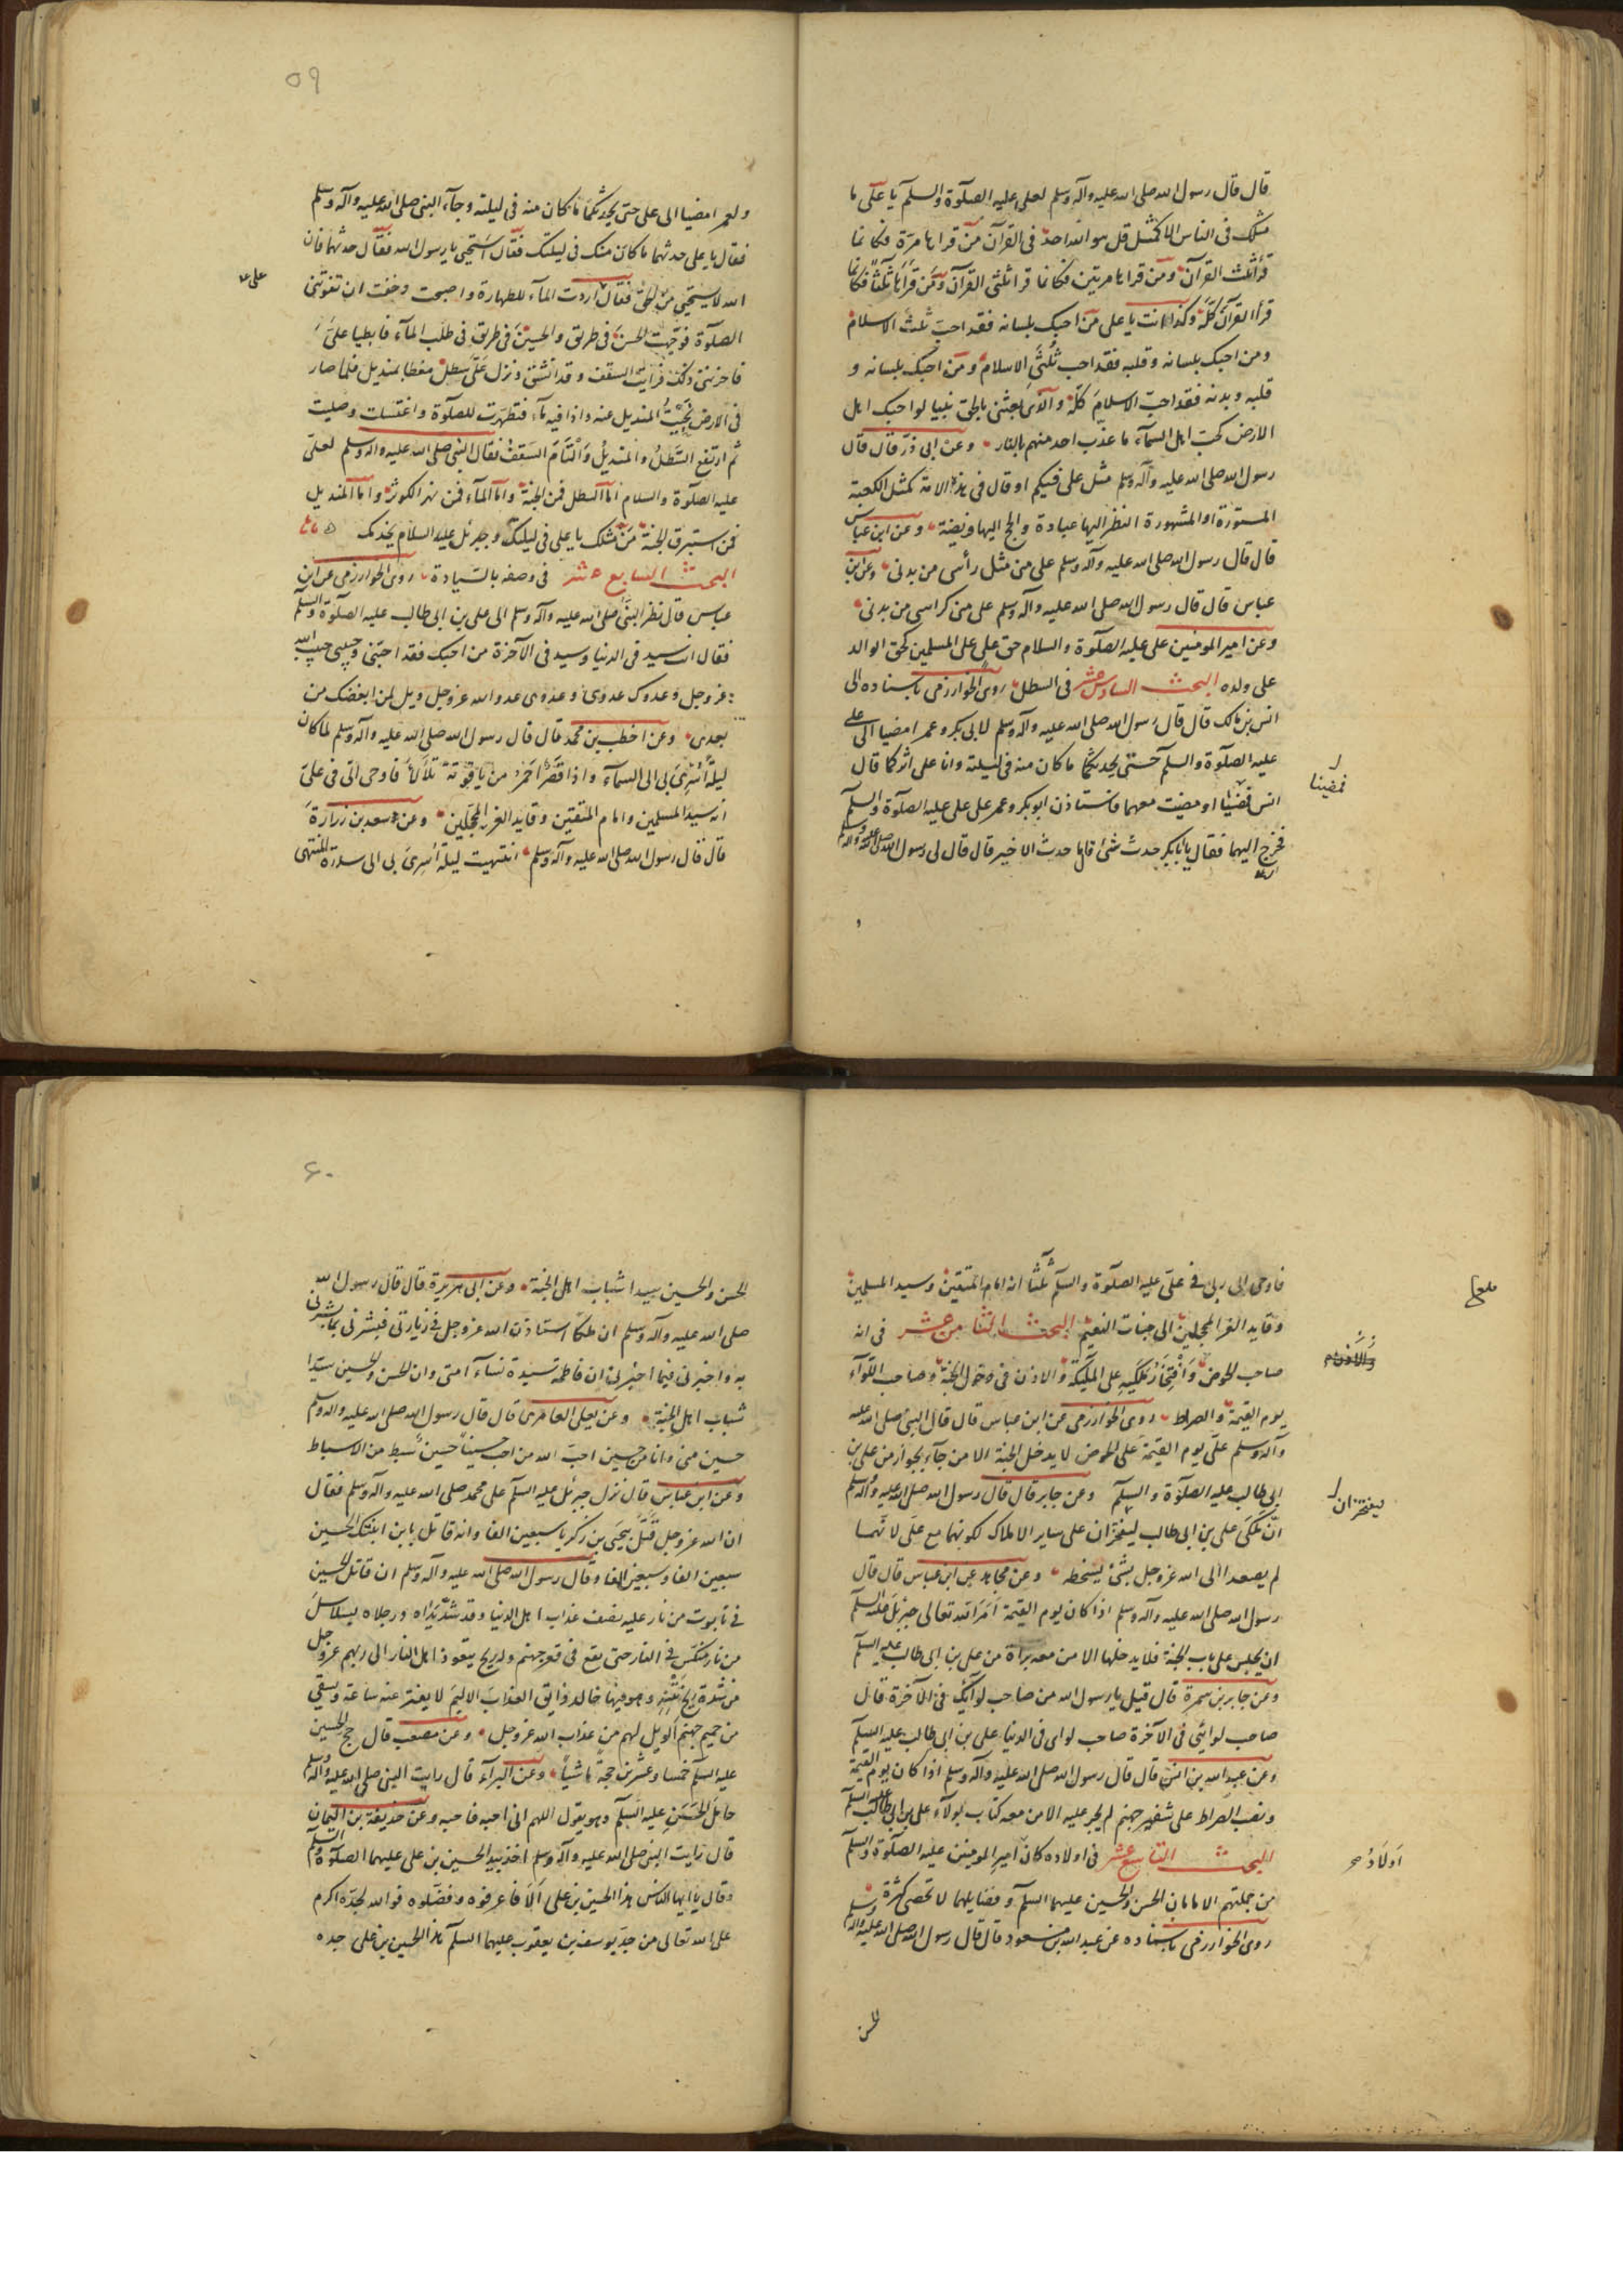 قال قال رسول الله صلى الله عليه وآله وسلم لعلي عليه الصلوة والسلم يا على ما
مثلك فى الناس الا كمثل قل هو الله احد فى القرآن من قراها مرة فكانما
قرأ ثلث القرآن ومن قراها مرتين فكانما قرا ثلثى القرآن ومن قراها ثلثا فكانما
قرأ القرآن كله وكذا انت يا على من احبك بلسانه فقد احب ثلث الاسلام
ومن احبك بلسانه وقلبه فقد احب ثلثى الاسلام ومن احبك بلسانه و
قلبه وبدنه فقد احب الاسلام كله والذى بعثنى بالحق نبيا لو احبك اهل
الارض كحب اهل السمآء ما عذب احد منهم بالنار وعن ابى ذر قال قال
رسول الله صلى الله عليه وآله وسلم مثل على فيكم او قال فى هذه الامة كمثل الكعبة
المستورة او المشهورة النظر اليها عبادة والحج اليها فريضة وعن ابن عباس
قال قال رسول الله صلى الله عليه وآله وسلم على منى مثل رأسى من بدنى وعن ابن
عباس قال قال رسول الله صلى الله عليه وآله وسلم على منى كراسى من بدنى
وعن امير المومنين على عليه الصلوة والسلام حق على على المسلمين كحق الوالد
على ولده البحث السادس عشر فى السطل روى الخوارزمى باسناده الى
انس بن مالك قال قال رسول الله صلى الله عليه وآله وسلم لابى بكر وعمر امضيا الى على
عليه الصلوة والسلم حتى يحدثكما ما كان منه فى ليلته وانا على اثركما قال
انس فمضيا او مضيت معهما فاستاذن ابو بكر وعمر على على عليه الصلوة والسلم
فمضينا
فخرج اليهما فقال يا ابا بكر حدث شئ قال ما حدث الا خير قال قال لى رسول الله صلى الله عليه وآله وسلم
٥٩
ولعمر امضيا الى على حتى يحدثكما ما كان منه فى ليلته وجآء النبى صلى الله عليه وآله وسلم
فقال يا على حدثهما ما كان منك فى ليلتك فقال استحيى يا رسول الله فقال حدثهما فان
الله لا يستحيى من الحق فقال اردت المآء للطهارة واصبحت وخفت ان تفوتنى
الصلوة فوجهت الحسن فى طريق والحسين فى طريق فى طلب المآء فابطيا على
فاحزننى ذلك فرايت السقف وقد انشق ونزل على سطل مغطا بمنديل فلما صار
فى الارض نحيت المنديل عنه واذا فيه مآء فتطهرت للصلوة واغتسلت وصليت
ثم ارتفع السطل والمنديل والتأم السقف فقال النبى صلى الله عليه وآله وسلم لعلى
عليه الصلوة والسلام اما السطل فمن الجنة واما المآء فمن نهر الكوثر واما المنديل
فمن استبرق الجنة من مثلك يا على فى ليلتك وجبرئل عليه السلام يخدمك
البحث السابع عشر فى وصفه بالسيادة روى الخوارزمى عن ابن
عباس قال نظر النبى صلى الله عليه وآله وسلم الى على بن ابى طالب عليه الصلوة والسلم
فقال انت سيد فى الدنيا وسيد فى الآخرة من احبك فقد احبنى وحبيبى حبيب الله
عز وجل وعدوك عدوى وعدوى عدو الله عز وجل ويل لمن ابغضك من
بعدى وعن اخطب بن محمد قال قال رسول الله صلى الله عليه وآله وسلم لما كان
ليلة اسرى بى الى السمآء واذا قصر احمر من ياقوتة تلألأ فاوحى الى فى على
انه سيد المسلمين وامام المتقين وقايد الغر المحجلين وعن اسعد بن زرارة
قال قال رسول الله صلى الله عليه وآله وسلم انتهيت ليلة اسرى بى الى سدرة المنتهى
فاوحى الى ربى فى على عليه الصلوة والسلم ثلثا انه امام المتقين وسيد المسلمين
وقايد الغر المحجلين الى جنات النعيم البحث الثامن عشر فى انه
صاحب الحوض وافتخار ملكيه على الملئكة والاذن فى دخول الجنة وصاحب اللوآء
يوم القيمة والصراط روى الخوارزمى عن ابن عباس قال قال النبى صلى الله عليه
وآله وسلم على يوم القيمة على الحوض لا يدخل الجنة الا من جآء بجواز من على بن
ابى طالب عليه الصلوة والسلم وعن جابر قال قال رسول الله صلى الله عليه وآله وسلم
ان ملكى على بن ابى طالب ليفتخران على ساير الاملاك لكونهما مع على لانهما
ليفتخران
لم يصعدا الى الله عز وجل بشئ يسخطه وعن مجاهد عن ابن عباس قال قال
رسول الله صلى الله عليه وآله وسلم اذا كان يوم القيمة امر الله تعالى جبرئل عليه السلم
ان يجلس على باب الجنة فلا يدخلها الا من معه براة من على بن ابى طالب عليه السلم
وعن جابر بن سمرة قال قيل يا رسول الله من صاحب لوآئك فى الآخرة قال
صاحب لوائى فى الآخرة صاحب لواى فى الدنيا على بن ابى طالب عليه السلم
وعن عبد الله بن انس قال قال رسول الله صلى الله عليه وآله وسلم اذا كان يوم القيمة
ونصب الصراط على شفير جهنم لم يجز عليه الا من معه كتاب بولآء على بن ابى طالب عليه السلم
البحث التاسع عشر فى اولاده كان امير المومنين عليه الصلوة والسلم
اولاده
من جملتهم الامامان الحسن والحسين عليهما السلم وفضايلهما لا تحصى كثرة
روى الخوارزمى باسناده عن عبد الله بن مسعود قال قال رسول الله صلى الله عليه وآله وسلم
الحسن
٦٠
الحسن والحسين سيدا شباب اهل الجنة وعن ابى هريرة قال قال رسول الله
صلى الله عليه وآله وسلم ان ملكا استاذن الله عز وجل فى زيارتى فبشرنى بما بشرنى
به واخبرنى فيما اخبرنى ان فاطمة سيدة نسآء امتى وان الحسن والحسين سيدا
شباب اهل الجنة وعن يعلى العامرى قال قال رسول الله صلى الله عليه وآله وسلم
حسين منى وانا من حسين احب الله من احب حسينا حسين سبط من الاسباط
وعن ابن عباس قال نزل جبرئل عليه السلم على محمد صلى الله عليه وآله وسلم فقال
ان الله عز وجل قتل بيحيى بن زكريا سبعين الفا وانه قاتل بابن ابنتك الحسين
سبعين الفا وسبعين الفا وقال رسول الله صلى الله عليه وآله وسلم ان قاتل الحسين
فى تابوت من نار عليه نصف عذاب اهل الدنيا وقد شد يداه ورجلاه بسلاسل
من نار منكس فى النار حتى يقع فى قعر جهنم وله ريح يتعوذ اهل النار الى ربهم عز وجل
من شدة ريح نتنه وهو فيها خالد ذايق العذاب الاليم لا يفتر عنه ساعة ويسقى
من حميم جهنم الويل لهم من عذاب الله عز وجل وعن مصعب قال حج الحسين
عليه السلم خمسا وعشرين حجة ماشيا وعن البرآء قال رايت النبى صلى الله عليه وآله وسلم
حامل الحسن عليه السلم وهو يقول اللهم انى احبه فاحبه وعن حذيفة بن اليمان
قال رايت النبى صلى الله عليه وآله وسلم اخذ بيد الحسين بن على عليهما الصلوة والسلم
وقال يا ايها الناس هذا الحسين بن على الا فاعرفوه وفضلوه فوالله لجده اكرم
على الله تعالى من جد يوسف بن يعقوب عليهما السلم هذا الحسين بن على جده